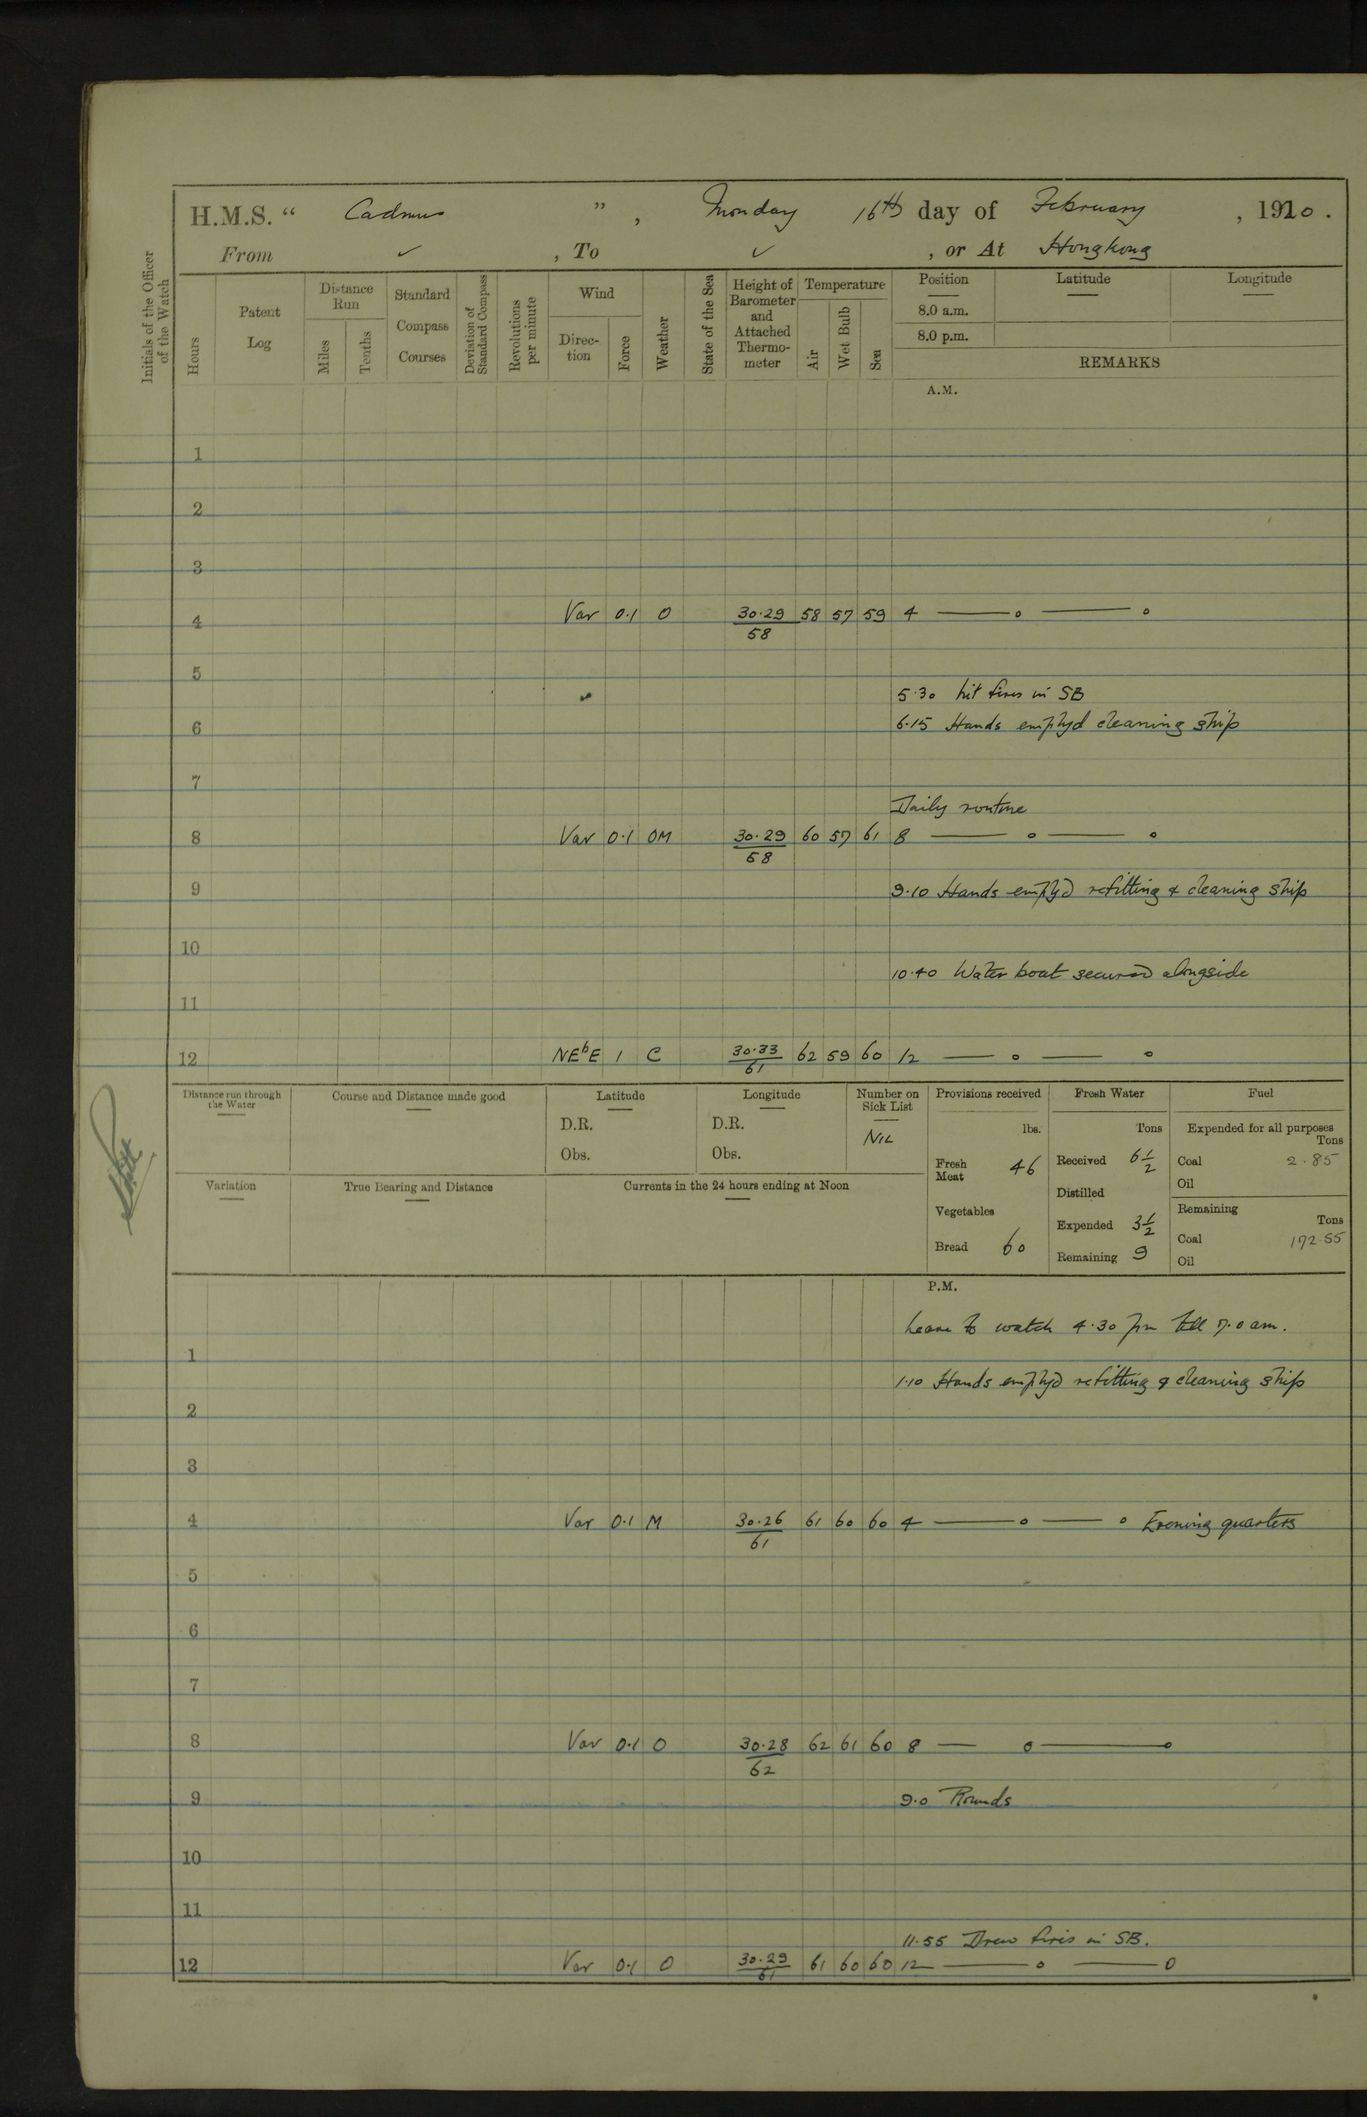 H.M.S. " Cadmus " , Monday 16th day of February , 1920 .
From ✓ , To ✓ , or At Hongkong
Initials of the Officer of the Watch
Hours
Patent Log
Distance Run
Miles
Tenths
Standard Compass Courses
Deviation of Standard Compass
Revolutions per minute
Wind
Direction
Force
Weather
State of the Sea
Height of Barometer and Attached Thermometer
Temperature
Air
Wet Bulb
Sea
Position Latitude Longitude
8.0 a.m.
8.0 p.m.
REMARKS
A.M.
1
2
3
4 Var 0.1 O 30.29/58 58 57 59 4 — o — o
5
5.30 Lit fires in SB
6 6.15 Hands employd cleaning ship
7
Daily routine
8 Var 0.1 OM 30.29/58 60 57 61 8 — o — o
9 9.10 Hands employd refitting & cleaning ship
10
10.40 Water boat secured alongside
11
12 NEbE 1 C 30.33/61 62 59 60 12 — o — o
Distance run through the Water
Course and Distance made good
Latitude
D.R.
Obs.
Longitude
D.R.
Obs.
Number on Sick List
NIL
Provisions received
lbs.
Fresh Meat 46
Vegetables
Bread 60
Fresh Water
Tons
Received 6 1/2
Distilled
Expended 3 1/2
Remaining 9
Fuel
Expended for all purposes
Tons
Coal 2.85
Oil
Remaining
Tons
Coal 172.55
Oil
Variation
True Bearing and Distance
Currents in the 24 hours ending at Noon
P.M.
Leave to watch 4.30 pm till 7.0 am.
1
1.10 Hands employd refitting & cleaning ship
2
3
4 Var 0.1 M 30.26/61 61 60 60 4 — o — o Evening quarters
5
6
7
8 Var 0.1 O 30.28/62 62 61 60 8 — o — o
9 9.0 Rounds
10
11
11.55 Drew fires in SB.
12 Var 0.1 O 30.29/61 61 60 60 12 — o — o